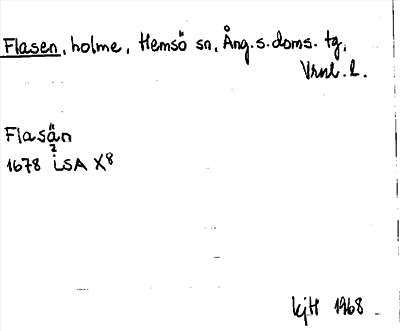 Flasen, holme, Hemsö sn, Ång. s. doms. tg,
Vrnl. l.
Flasän
2
1678 LSA X8
kjH 1968